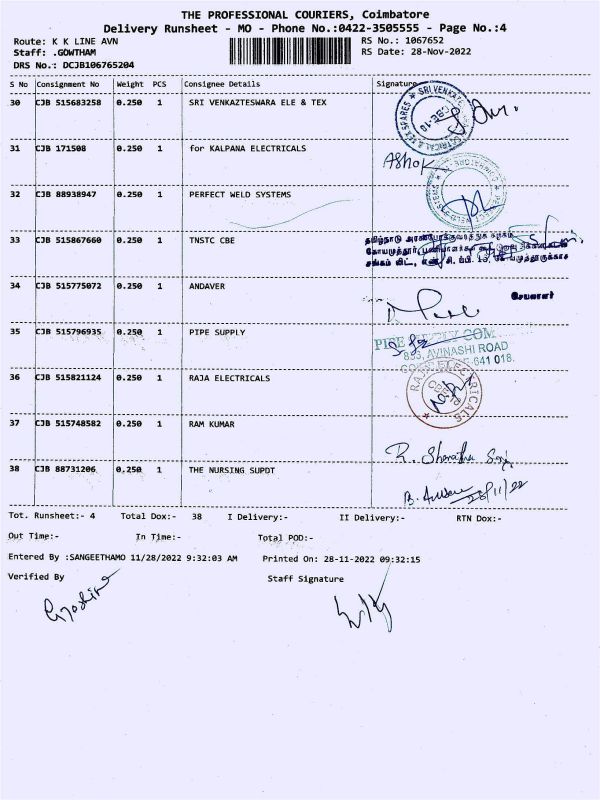 THE PROFESSIONAL COURIERS, Coimbatore
Delivery Runsheet - MO - Phone No.:0422-3505555 - Page No.:4
Route: K K LINE AVN RS No.: 1067652
Staff: .GOWTHAM RS Date: 28-Nov-2022
DRS No.: DCJB106765204
S No Consignment No Weight PCS Consignee Details Signature
30 CJB 515683258 0.250 1 SRI VENKAZTESWARA ELE & TEX
31 CJB 171508 0.250 1 for KALPANA ELECTRICALS
Ashok
32 CJB 88938947 0.250 1 PERFECT WELD SYSTEMS
33 CJB 515867660 0.250 1 TNSTC CBE
தமிழ்நாடு அரசு
34 CJB 515775072 0.250 1 ANDAVER
செயலாளர்
35 CJB 515796935 0.250 1 PIPE SUPPLY
COM
AVINASHI ROAD
641 018.
36 CJB 515821124 0.250 1 RAJA ELECTRICALS
RAJA ELECTRICALS
37 CJB 515748582 0.250 1 RAM KUMAR
38 CJB 88731206 0.250 1 THE NURSING SUPDT
Tot. Runsheet:- 4 Total Dox:- 38 I Delivery:- II Delivery:- RTN Dox:-
Out Time:- In Time:- Total POD:-
Entered By :SANGEETHAMO 11/28/2022 9:32:03 AM Printed On: 28-11-2022 09:32:15
Verified By Staff Signature